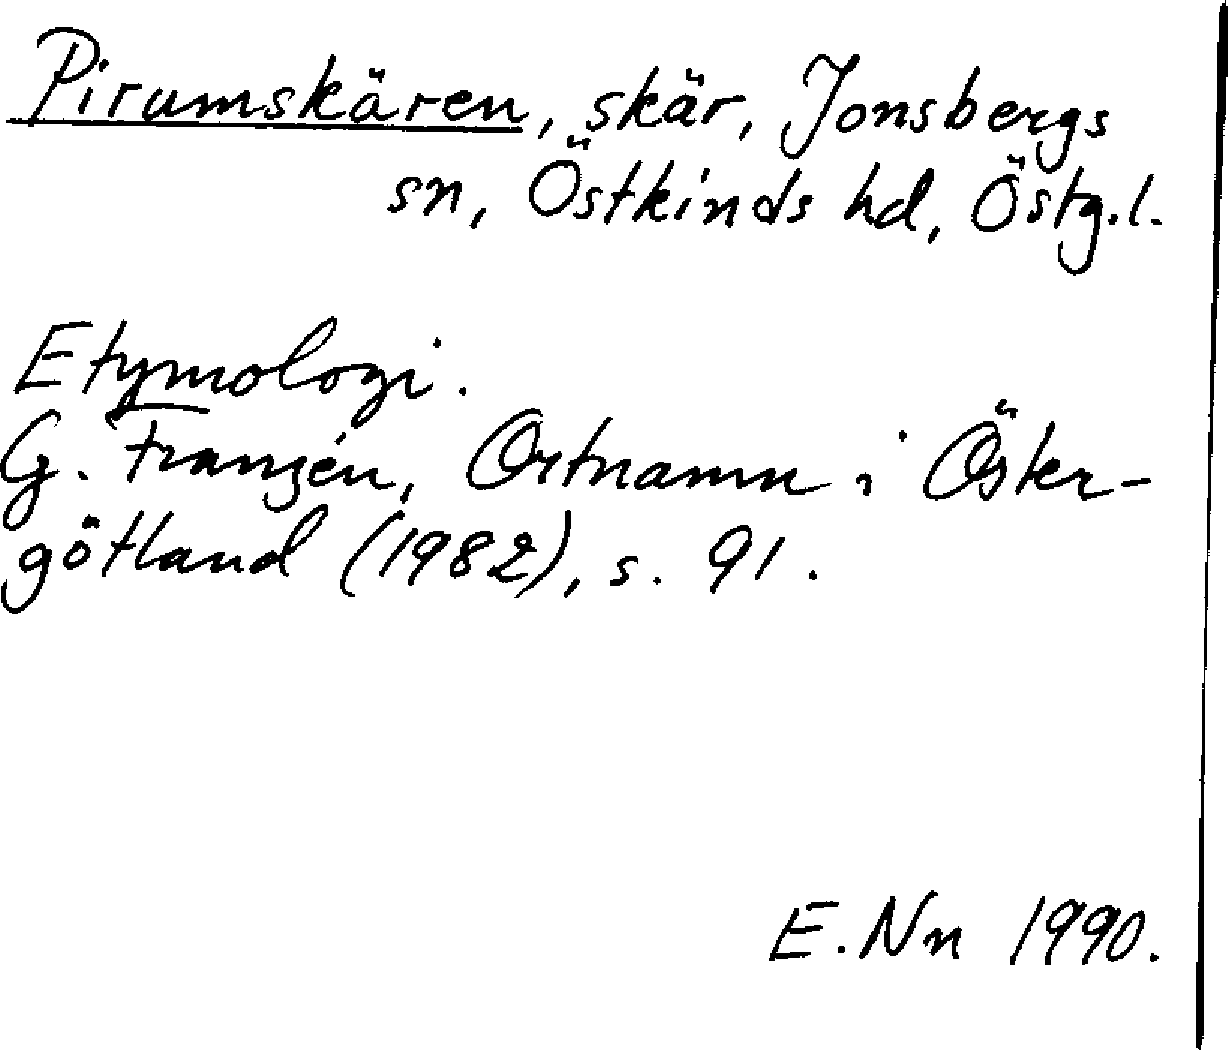 Pirumskären, skär, Jonsbergs
sn, Östkinds hd, Östg.l.
Etymologi.
G. Franzén, Ortnamn i Öster-
götland (1982), s. 91.
E. Nn 1990.